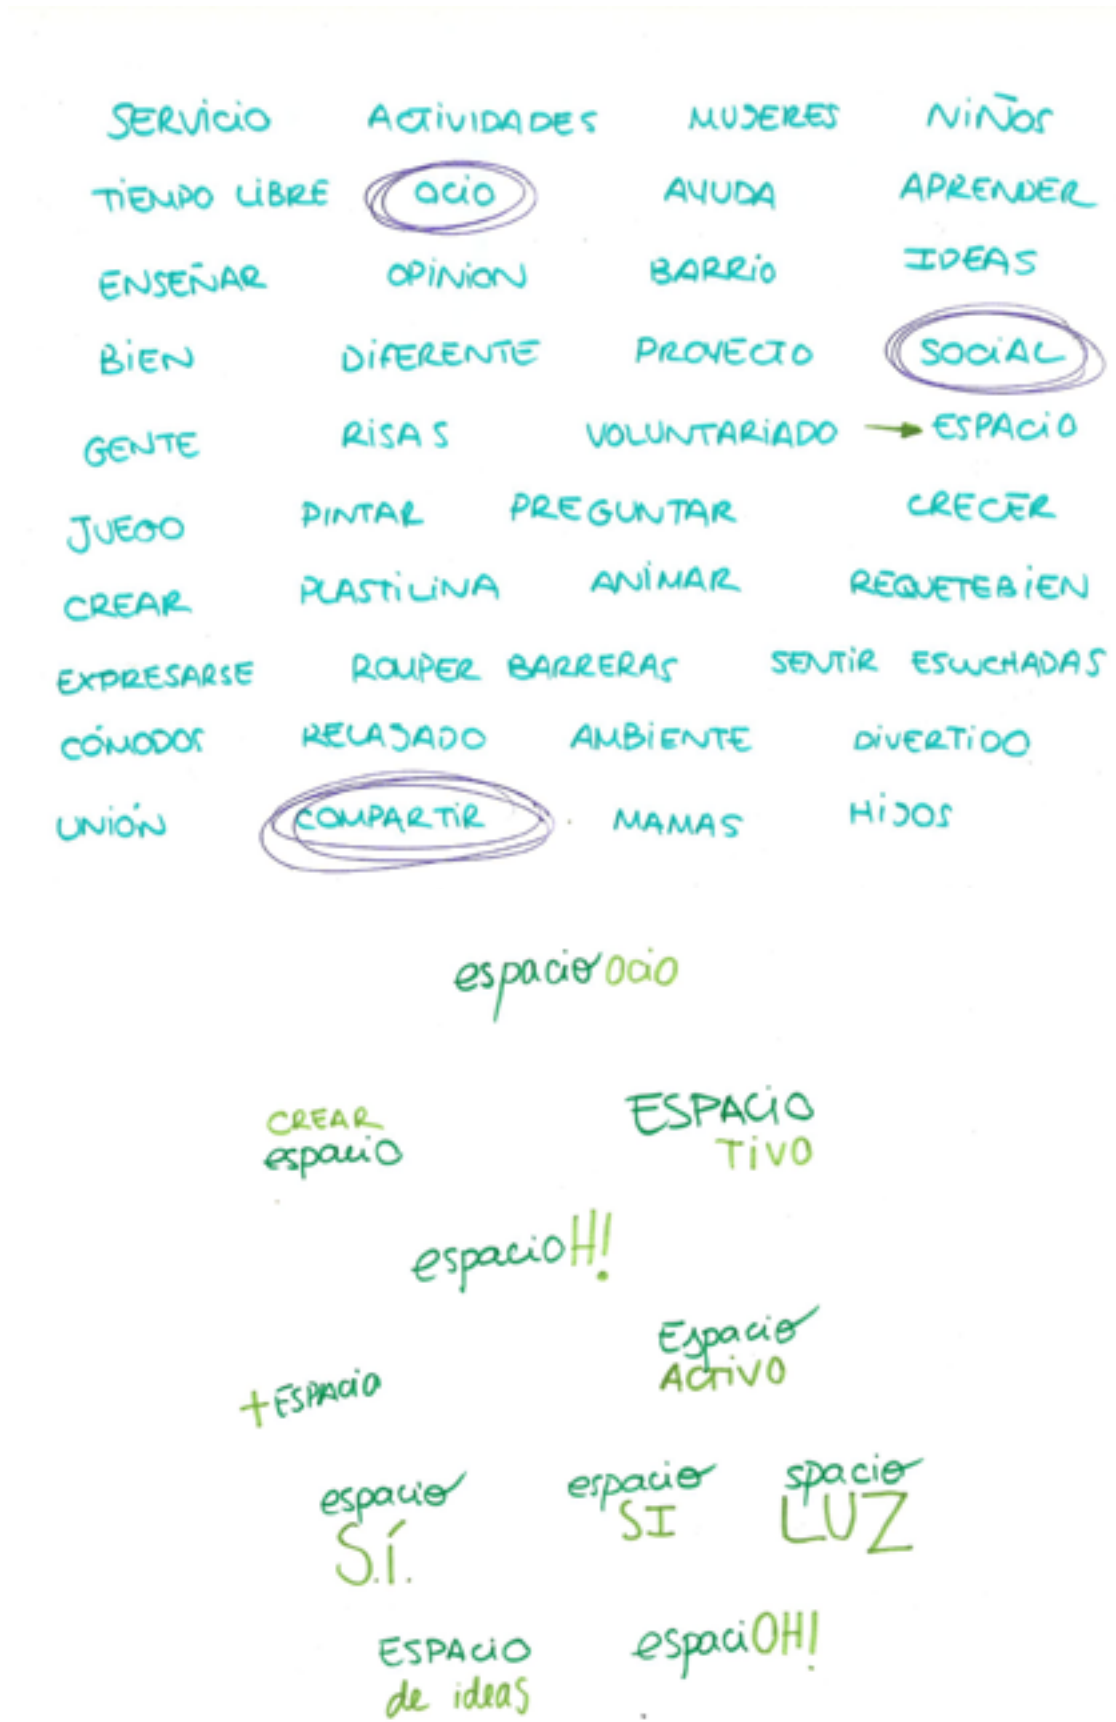 SERVICIO ACTIVIDADES MUJERES NIÑOS
TIEMPO LIBRE OCIO AYUDA APRENDER
ENSEÑAR OPINION BARRIO IDEAS
BIEN DIFERENTE PROYECTO SOCIAL
GENTE RISAS VOLUNTARIADO → ESPACIO
JUEGO PINTAR PREGUNTAR CRECER
CREAR PLASTILINA ANIMAR REQUETEBIEN
EXPRESARSE ROMPER BARRERAS SENTIR ESCUCHADAS
CÓMODOS RELAJADO AMBIENTE DIVERTIDO
UNIÓN COMPARTIR MAMAS HIJOS
espacio ocio
CREAR
espacio
ESPACIO
TIVO
espacioH!
+ESPACIO
Espacio
ACTIVO
espacio
S.Í.
espacio
SI
spacio
LUZ
ESPACIO
de ideas
espaciOH!